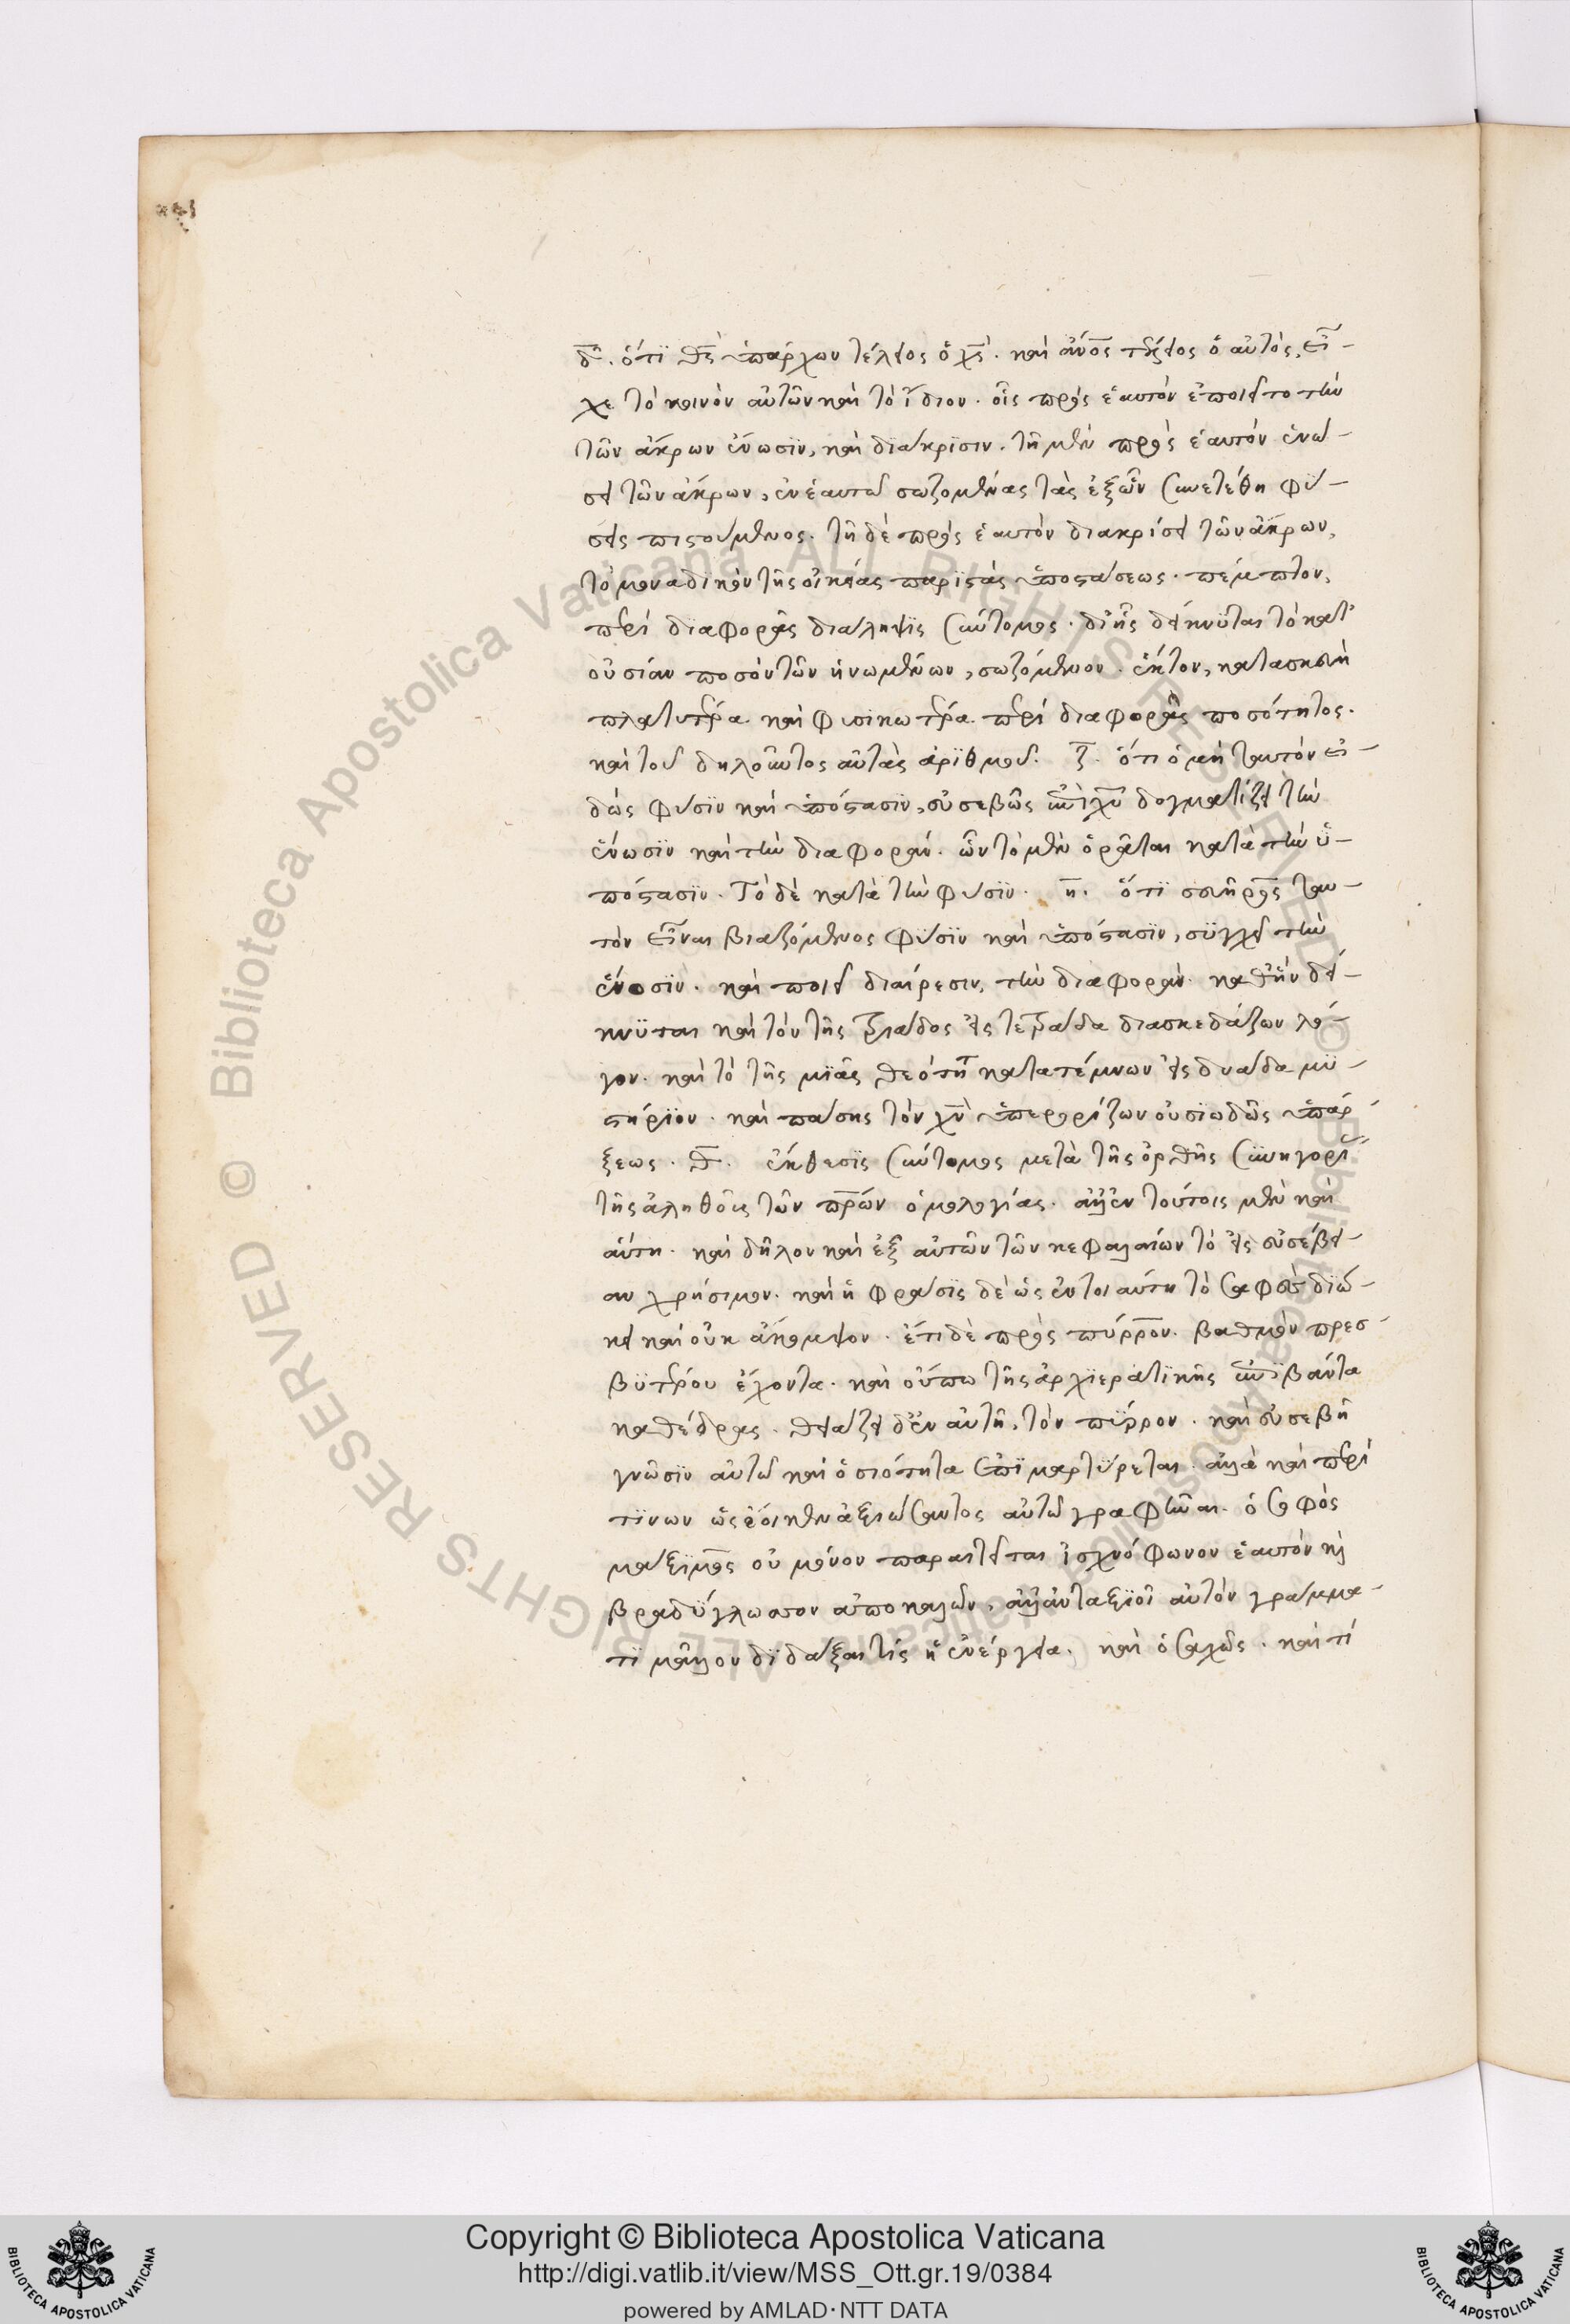 δ̅. ὅτι θ̅ς̅ ὑπάρχων τέλειος ὁ χ̅ς̅. καὶ ἄν̅ο̅ς τέλειος ὁ αὐτός, εἶ-
χε τὸ κοινὸν αὐτῶν καὶ τὸ ἴδιον. οἷς πρὸς ἑαυτὸν ἐποιεῖτο τὴν
τῶν ἄκρων ἕνωσϊν, καὶ διάκρϊσιν. τῆ μὲν πρὸς ἑαυτὸν ἑνώ-
σει τῶν ἄκρων, ἐν ἑαυτῶ σωζομένας τὰς ἐξ ὧν συνετέθη φύ-
σεις πιστούμενος. τῆ δὲ πρὸς ἑαυτὸν διακρίσει τῶν ἄκρων,
τὸ μοναδικὸν τῆς οἰκείας παρϊστὰς ὑποστάσεως. πέμπτον,
περὶ διαφορᾶς διάληψις σύντομος. δι' ἧς δείκνυται τὸ κατ'
οὐσίαν ποσὸν τῶν ἡνωμένων, σωζόμενον. ἕκτον, κατασκευὴ
πλατυτέρα καὶ φυσικωτέρα περὶ διαφορᾶς ποσότητος.
καὶ τοῦ δηλοῦντος αὐτὰς ἀρϊθμοῦ. ζ̅. ὅτι ὁ μὴ ταυτὸν εἰ-
δὼς φύσϊν καὶ ὑπόστασϊν, εὐσεβῶς ἐπὶ χ̅υ̅ δογματίζει τὴν
ἕνωσϊν καὶ τὴν διαφοράν. ὧν τὸ μὲν ὁρᾶται κατὰ τὴν ὑ-
πόστασϊν. Τὸ δὲ κατὰ τὴν φύσϊν. η̅. ὅτι σευῆρος ταυ-
τὸν εἶναι βιαζόμενος φύσϊν καὶ ὑπόστασϊν, συγχεῖ τὴν
ἕνοσϊν. καὶ ποιεῖ διαίρεσιν, τὴν διαφοράν. καθ' ἣν δεί-
κνυται καὶ τὸν τῆς τριάδος εἰς τετράδα διασκεδάζων λό-
γον. καὶ τὸ τῆς μιᾶς θεότητ κατατέμνων εἰς δυάδα μυ-
στήριον. καὶ πάσης τὸν χ̅ν̅ ὑπερορίζων οὐσιωδῶς ὑπάρ-
ξεως. θ̅. ἔκθεσϊς σύντομος μετὰ τῆς ὀρθῆς συνηγορί
τῆς ἀληθοῦς τῶν π̅ρ̅ων ὁμολογίας. ἀλλ' ἐν τούτοις μὲν καὶ
αὕτη. καὶ δῆλον καὶ ἐξ αὐτῶν τῶν κεφαλαίων τὸ εἰς εὐσέβει-
αν χρήσιμον. καὶ ἡ φράσϊς δὲ ὡς ἐν τοιαύτη τὸ σαφὲς διώ-
κει καὶ οὐκ ἄκομψον. ἔτι δὲ πρὸς πύρρον. βαθμὸν πρεσ-
βυτέρου ἔχοντα. καὶ οὔπω τῆς ἀρχϊερατϊκῆς ἐπϊβάντα
καθέδρας. θειάζει δ' ἐν αὐτῆ, τὸν πύρρον. καὶ εὐσεβῆ
γνῶσϊν αὐτῶ καὶ ὁσιότητα ἐπϊμαρτύρεται. ἀλλὰ καὶ περὶ
τίνων ὡς ἔοικεν ἀξιώσαντος αὐτῶ γραφῆναι. ὁ σοφὸς
μάξιμος οὐ μόνον παραιτεῖται ἰσχνόφωνον ἑαυτὸν κ̀
βραδύγλωσσον ἀποκαλῶν, ἀλλ' ἀνταξϊοῖ αὐτὸν γράμμα-
τϊ μᾶλλον διδάξαι τίς ἡ ἐνέργεια. καὶ ὁ σαχῶς. καὶ τί